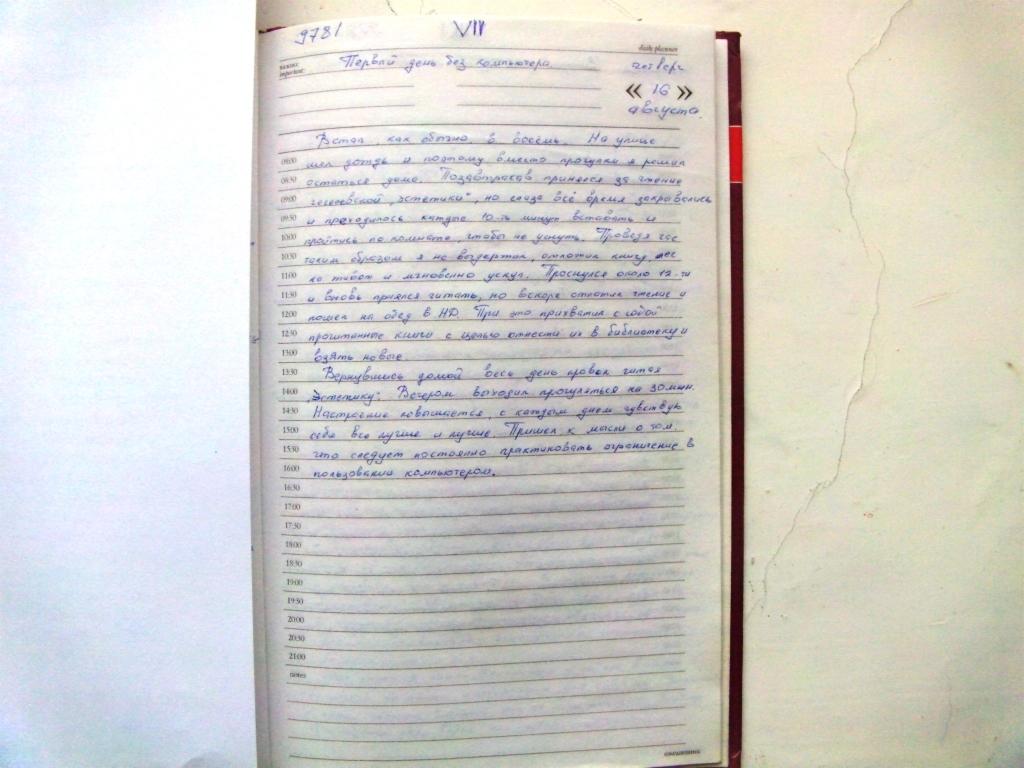 9781 VII
daily planner
важно:
important:
Первый день без компьютера
четверг
« 16 »
августа.
Встал, как обычно, в восемь. На улице
08:00 шел дождь и поэтому вместо прогулки я решил
08:30 остаться дома. Позавтракав принялся за чтение
09:00 гегелевской „Эстетики", но глаза всё время закрывались
09:30 и приходилось каждые 10-ть минут вставать и
10:00 пройтись по комнате, чтобы не уснуть. Проведя час
10:30 таким образом я не выдержал, отложил книгу, лег
11:00 на живот и мгновенно уснул. Проснулся около 12-ти
11:30 и вновь принялся читать, но вскоре отложил чтение и
12:00 пошел на обед в НД. При это прихватил с собой
12:30 прочитанные книги с целью отнести их в библиотеку и
13:00 взять новые.
13:30 Вернувшись домой весь день провел читая
14:00 „Эстетику". Вечером выходил прогуляться на 30 мин.
14:30 Настроение повышается, с каждым днем чувствую
15:00 себя все лучше и лучше. Пришел к мысли о том,
15:30 что следует постоянно практиковать ограничение в
16:00 пользовании компьютером.
16:30
17:00
17:30
18:00
18:30
19:00
19:30
20:00
20:30
21:00
notes
ежедневник